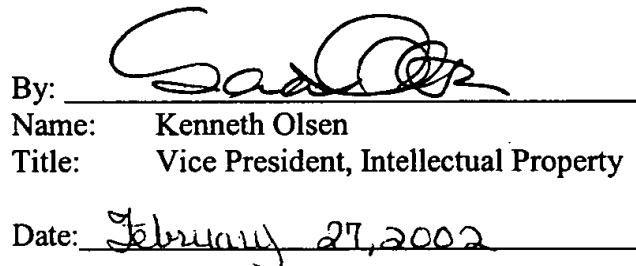 By:
Name: Kenneth Olsen
Title: Vice President, Intellectual Property
Date: February 27, 2002